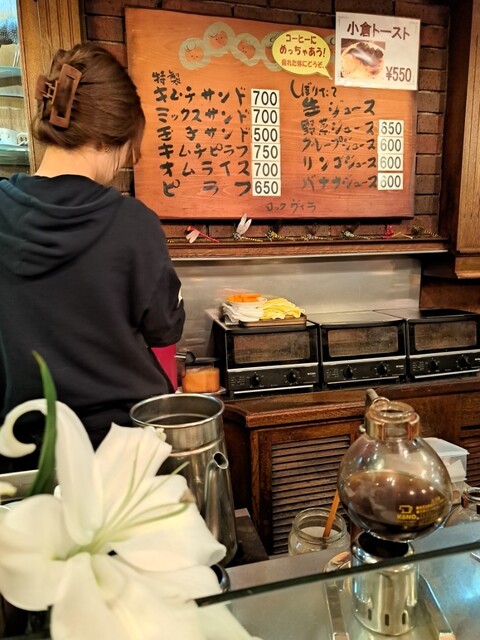 コーヒーに
めっちゃあう!
疲れた体にどうぞ。
小倉トースト
¥550
特製
キムチサンド 700
ミックスサンド 700
玉子サンド 500
キムチピラフ 750
オムライス 700
ピラフ 650
しぼりたて
生ジュース
野菜ジュース 650
グレープジュース 600
リンゴジュース 600
バナナジュース 600
ロックヴィラ
KONO